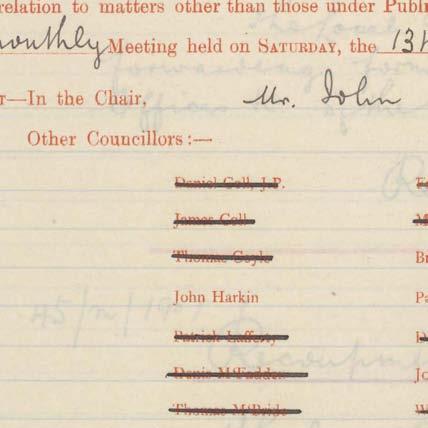 relation to matters other than those under Publi
monthly Meeting held on SATURDAY, the 13t
r—In the Chair, Mr. John
Other Councillors:—
Daniel Coll, J.P.
James Coll
Thomas Coyle
John Harkin
Patrick Lafferty
Denis McFadden
Thomas McBride